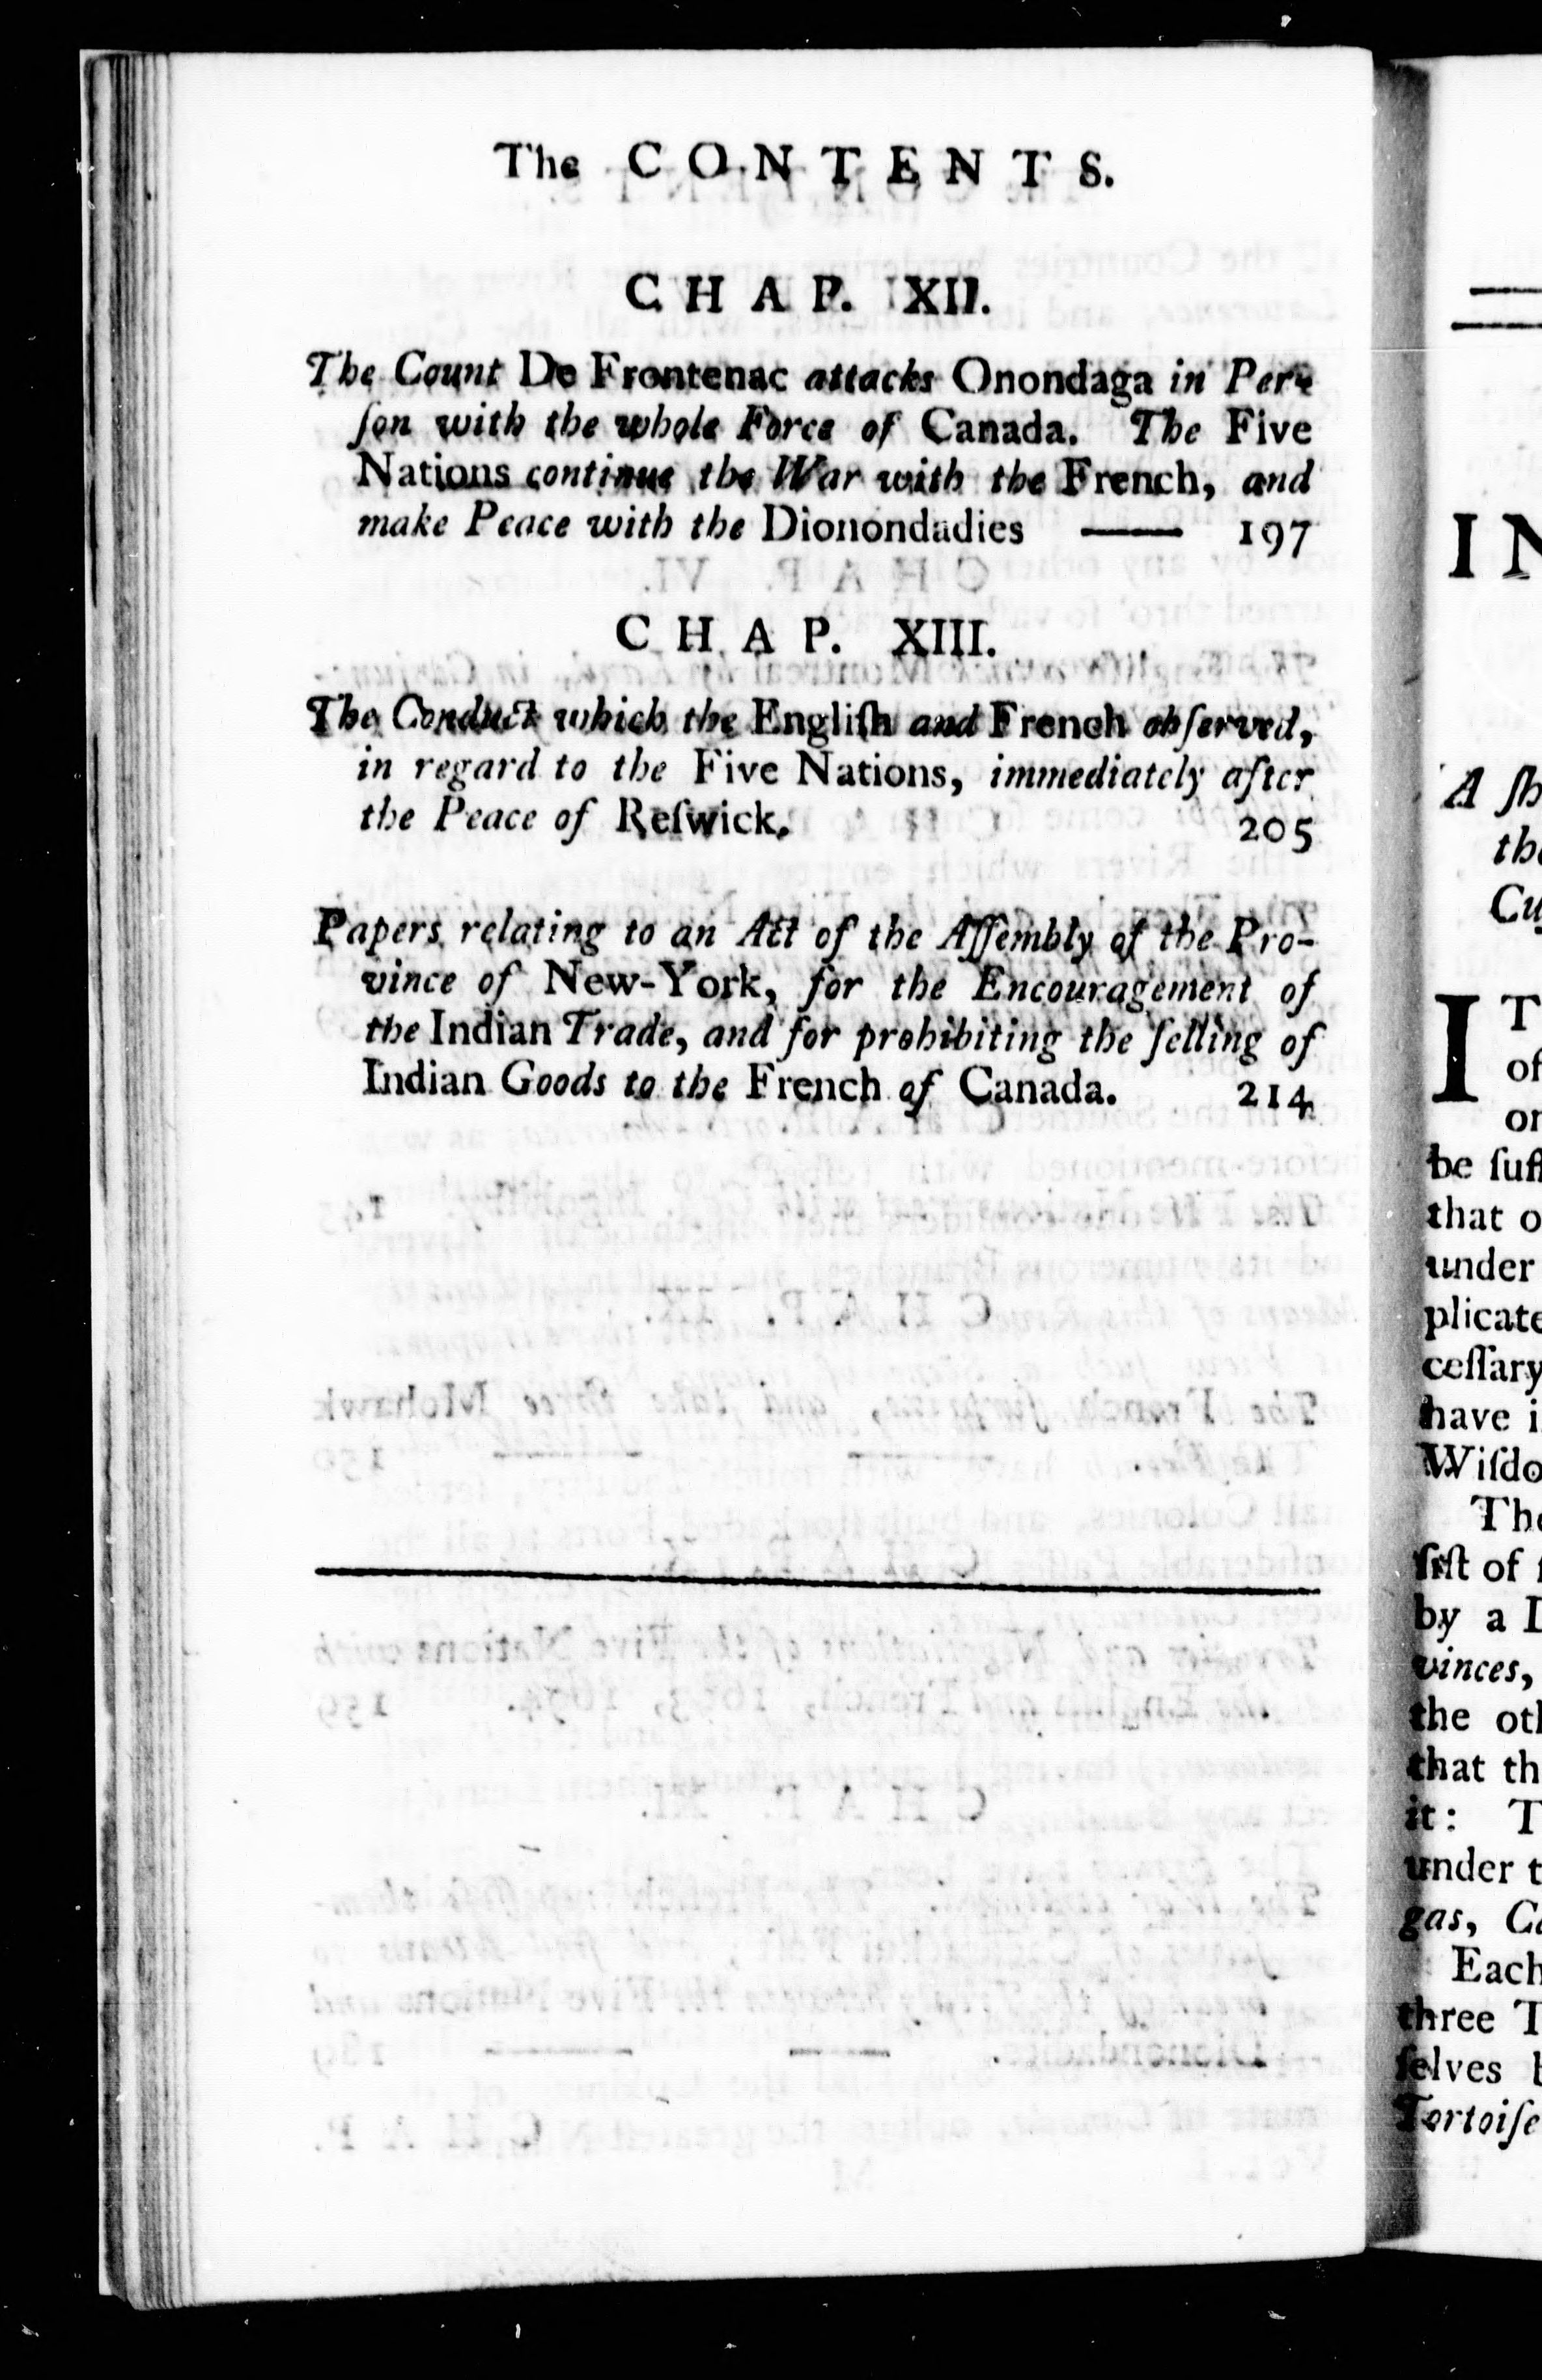 The CONTENTS.
CHAP. XII.
The Count De Frontenac attacks Onondaga in Per-
ſon with the whole Force of Canada. The Five
Nations continue the War with the French, and
make Peace with the Dionondadies —— 197
CHAP. XIII.
The Conduct which the Engliſh and French obſerved,
in regard to the Five Nations, immediately after
the Peace of Reſwick. 205
Papers relating to an Act of the Aſſembly of the Pro-
vince of New-York, for the Encouragement of
the Indian Trade, and for prohibiting the ſelling of
Indian Goods to the French of Canada. 214
IN
A ſh
the
Cu
IT
of
or
be ſuff
that o
under
plicate
ceſſary
have i
Wiſdo
The
ſiſt of
by a
vinces,
the oth
that th
it: T
under t
gas, Ca
Each
three T
ſelves b
Tortoiſe